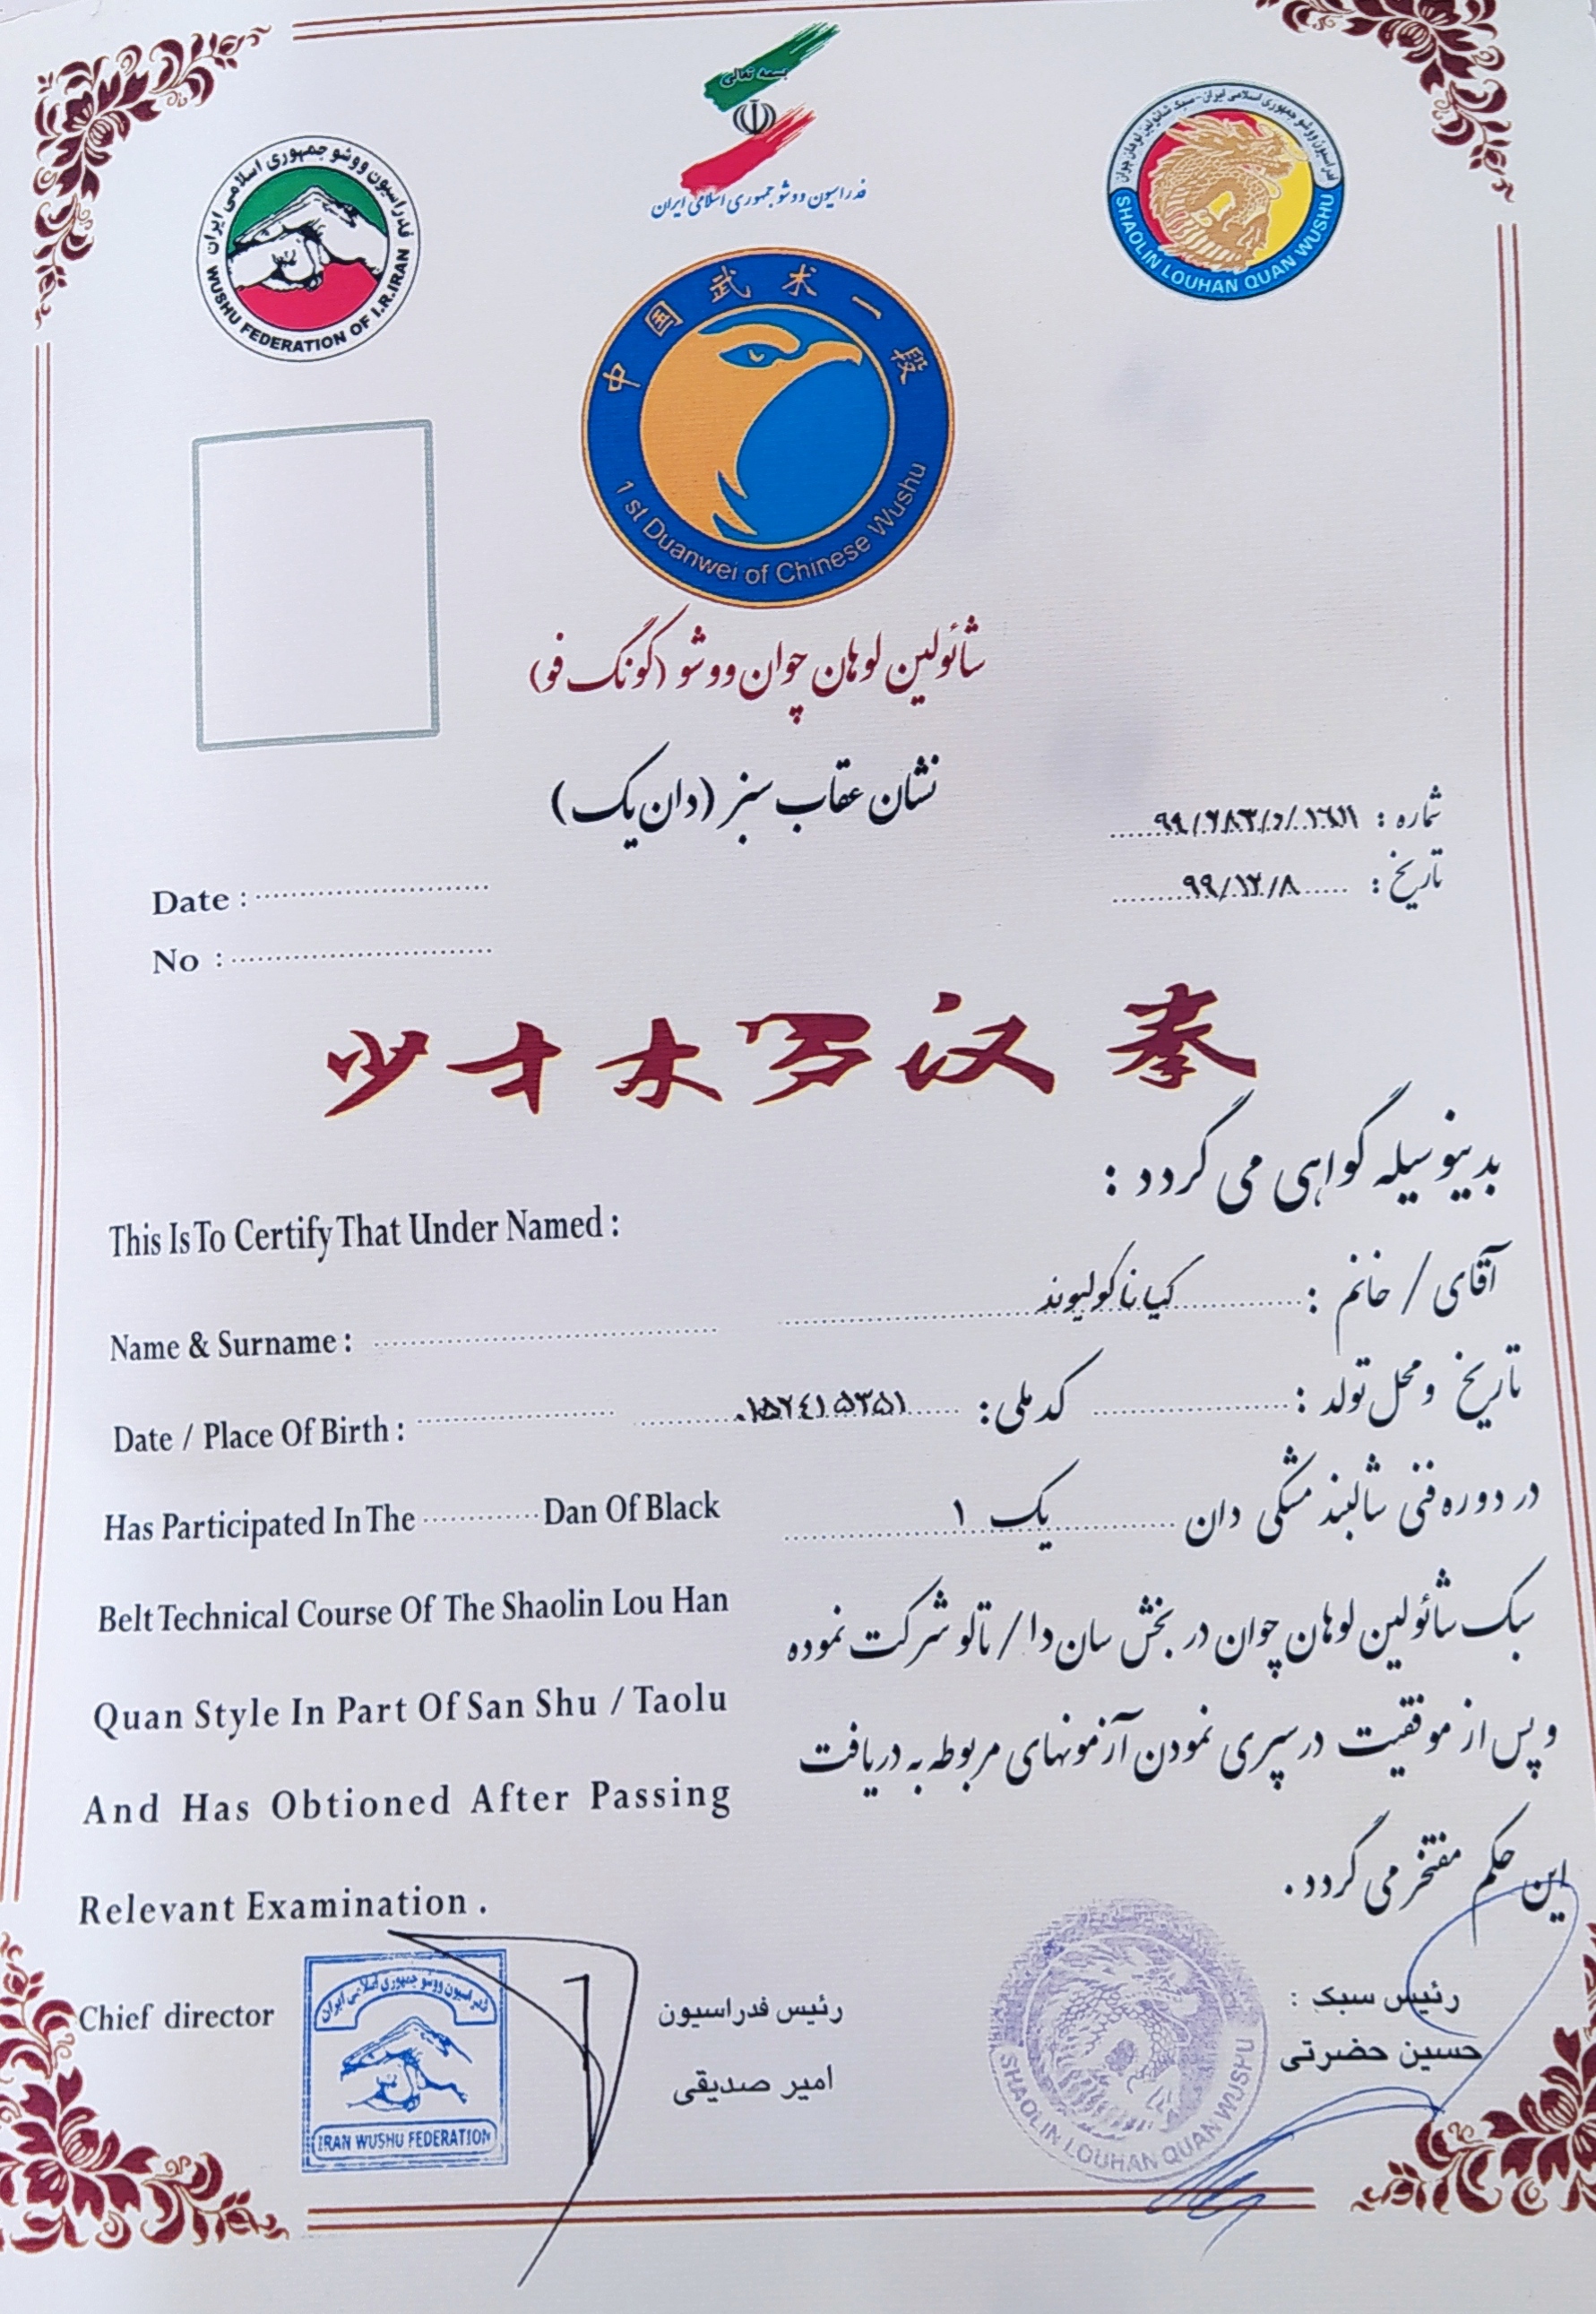 بسمه تعالی
فدراسیون ووشو جمهوری اسلامی ایران
فدراسیون ووشو جمهوری اسلامی ایران
WUSHU FEDERATION OF I.R.IRAN
فدراسیون ووشو جمهوری اسلامی ایران - سبک شائولین لوهان چوان
SHAOLIN LOUHAN QUAN WUSHU
中国武术一段
1 st Duanwei of Chinese Wushu
شائولین لوهان چوان ووشو (کونگ فو)
نشان عقاب سبز (دان یک)
شماره :
تاریخ : ۹۹/۱۲/۸
Date :
No :
少林罗汉拳
بدینوسیله گواهی می گردد :
This Is To Certify That Under Named :
آقای / خانم : کیانا کولیوند
Name & Surname :
تاریخ و محل تولد : کد ملی: ۰۱۵۲۴۱۵۳۵۱
Date / Place Of Birth :
در دوره فنی شالبند مشکی دان یک ۱
Has Participated In The Dan Of Black
سبک شائولین لوهان چوان در بخش سان دا / تالو شرکت نموده
Belt Technical Course Of The Shaolin Lou Han
و پس از موفقیت در سپری نمودن آزمونهای مربوطه به دریافت
Quan Style In Part Of San Shu / Taolu
این حکم مفتخر می گردد .
And Has Obtioned After Passing
Relevant Examination .
رئیس سبک :
حسین حضرتی
SHAOLIN LOUHAN QUAN WUSHU
رئیس فدراسیون
امیر صدیقی
Chief director
فدراسیون ووشو جمهوری اسلامی ایران
IRAN WUSHU FEDERATION